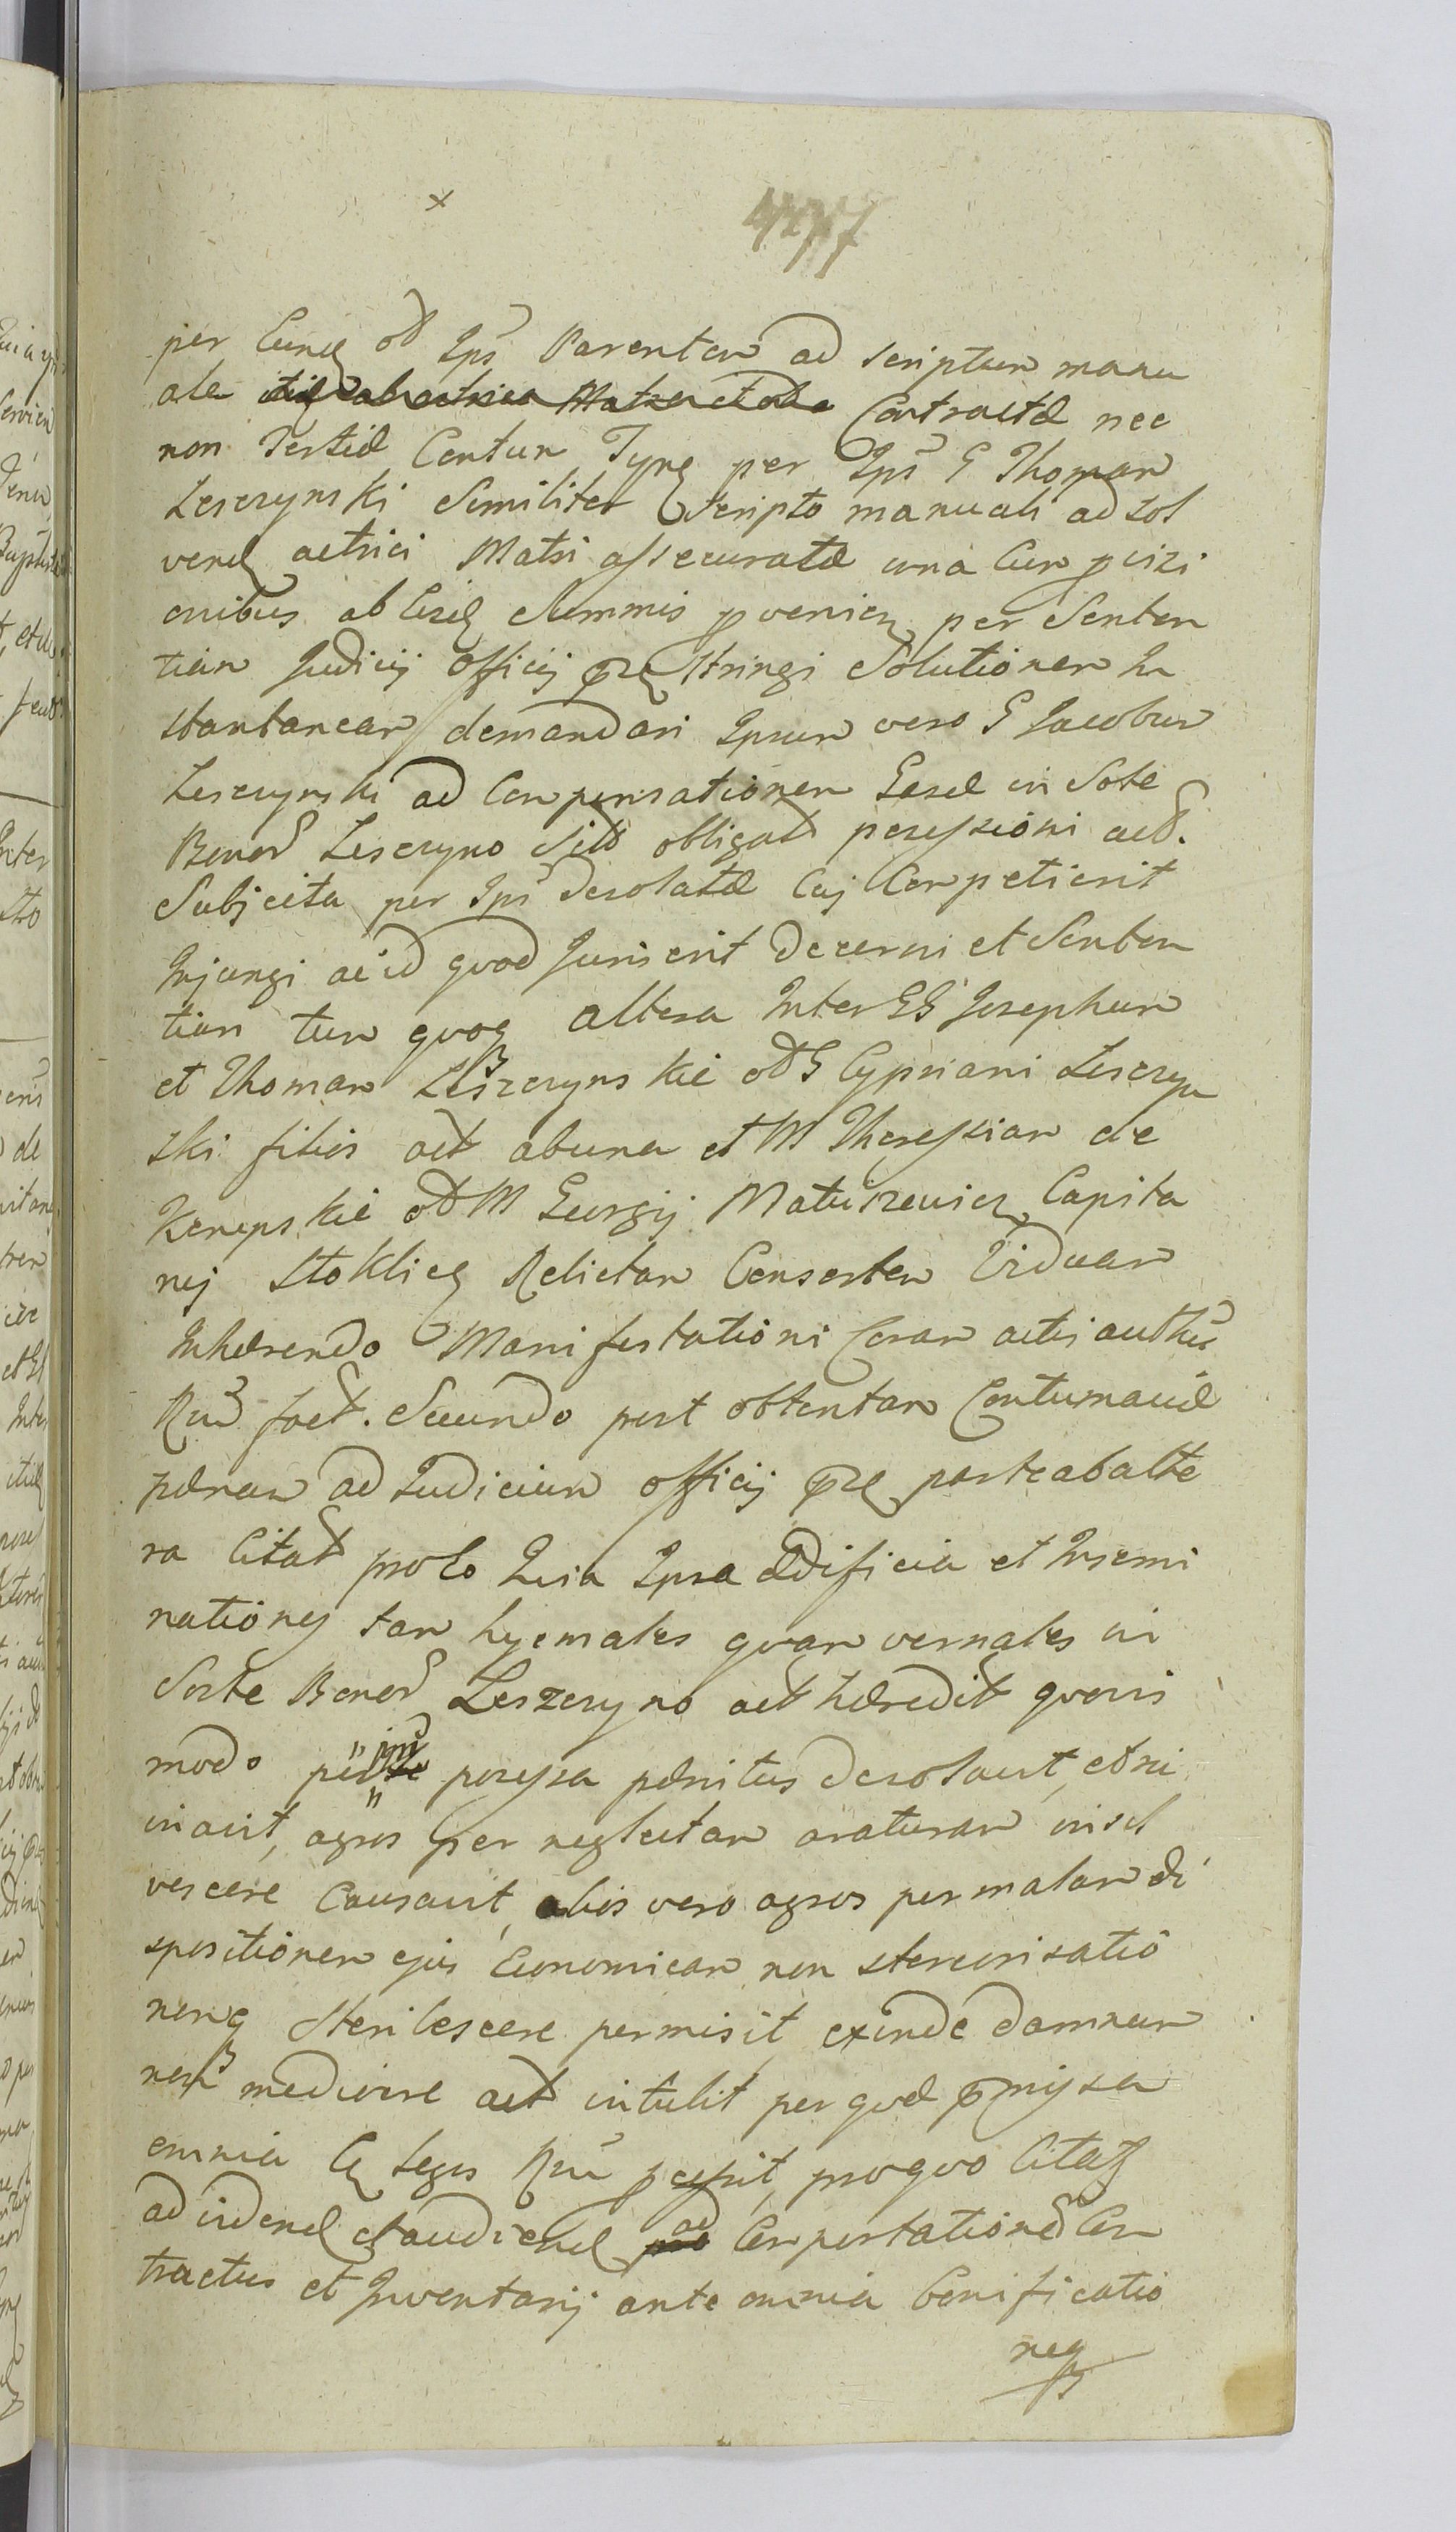 x
4777
per Eund od Ips Parentem ad scriptum manu
ale Contractæ nec
non Tertiæ Centum Tynf per Ips G Thomam
Lesczynski Similiter Scripto manuali ad sol
vend actrici Matri assecuratæ una Cum pvizi
onibus ab Eisd Summis pvenien per Senten
tiam Judicij Officij pstringi Solutionem In
stantaneam demandari Ipsum vero G Jacobum
Lesczynski ad Compensationem Eased in Sorte
Bonor Lesczyno Sibi obligat possessioni act.
Subjecta per Ips desolatæ Cuj Competierit
Injungi ac id quod Juris erit decerni et Senten
tiam tum quoq altera Inter GG Josephum
et Thomam Leszczynskie od G Cypriani Lesczyn
ski filios act ab una et M Theressiam de
Kempskie od M Georgij Matuszewicz Capita
nej Stoklic Relictam Consortem Viduam
Inhærendo Manifestationi Coram actis authen
Rnd fact. Secundo post obtentam Contumaciæ
pænam ad Judicium Officij parte ab alte
ra Citat pro Eo Quia Ipsa ædificia et Insemi
nationes tam hyemales quam vernales in
Sorte Bonor Leszczyno act hæredit quovis
modo possessa pænitus desolavit, et ru
inavit, agros per neglectam araturam insil
vescere Causavit, alios vero agros per malam di
spositionem ejus Economicam non stercorisatio
nemq Sterilescere permisit, exinde damnum
non mediocre act intulit per quod pmissa
omnia Leges Rni, pro quo Citat
ad vidend et audiend ad Comportationed Con
tractus et Inventarij ante omnia bonificatio
neq